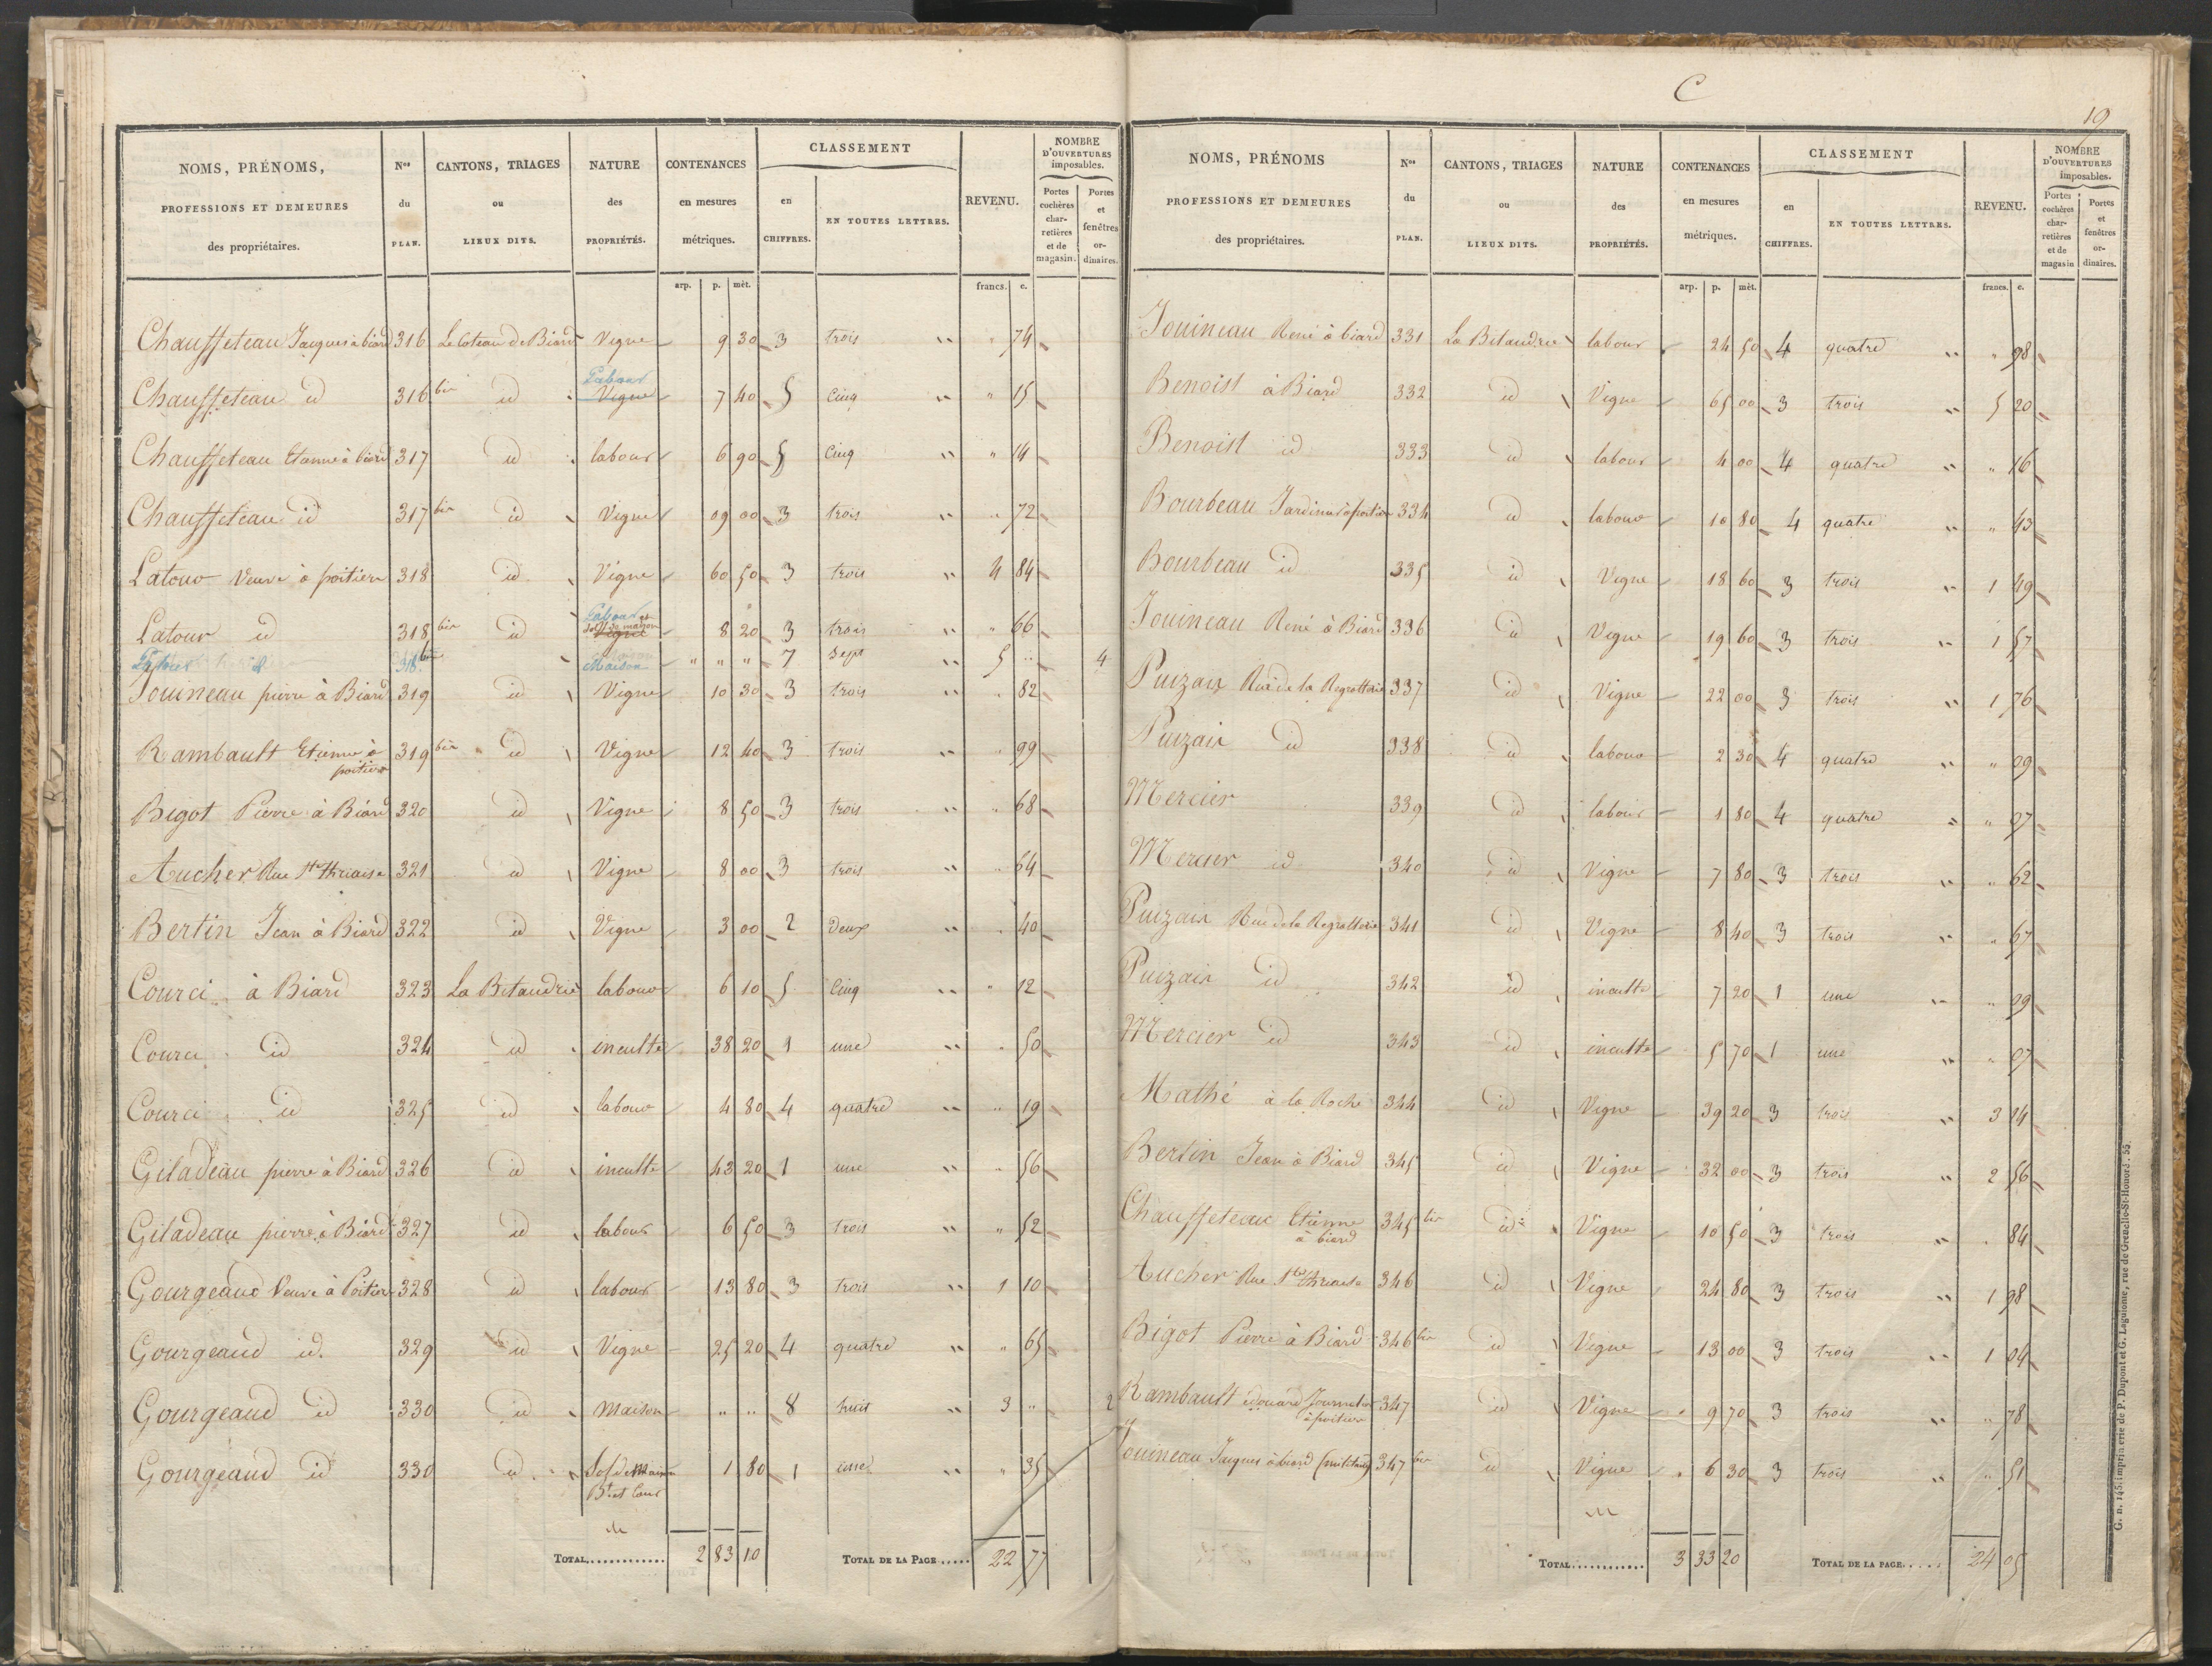 C
19
NOMS, PRÉNOMS, PROFESSIONS ET DEMEURES des propriétaires. | Nos du PLAN. | CANTONS, TRIAGES ou LIEUX DITS. | NATURE des PROPRIÉTÉS. | CONTENANCES en mesures métriques. | CLASSEMENT en CHIFFRES. | EN TOUTES LETTRES. | REVENU. | NOMBRE D'OUVERTURES imposables. Portes cochères charretières et de magasin. | Portes et fenêtres ordinaires.
arp. | p. | mèt. | francs. | c.
Chauffeteau Jacques à biard 316 Le Coteau de Biard Vigne 9 30 3 trois " " 74
Chauffeteau id 316 bis id Labour Vigne 7 40 5 Cinq " " 15
Chauffeteau Etienne à biard 317 id labour 6 90 5 Cinq " " 14
Chauffeteau id 317 bis id Vigne 09 00 3 trois " " 72
Latour Veuve à poitiers 318 id Vigne 60 50 3 trois " 4 84
Latour id 318 bis id Labour et sol de maison Vigne 8 20 3 trois " " 66
Latour 318 bis Maison " " " 7 Sept " 5 " 4
Jouineau pierre à Biard 319 id Vigne 10 30 3 trois " " 82
Rambault Etienne à poitiers 319 bis id Vigne 12 40 3 trois " " 99
Bigot Pierre à Biard 320 id Vigne 8 50 3 trois " " 68
Aucher Rue Ste thriaise 321 id Vigne 8 00 3 trois " " 64
Bertin Jean à Biard 322 id Vigne 3 00 2 Deux " " 40
Courci à Biard 323 La Bitaudrie labour 6 10 5 Cinq " " 12
Courci id 324 id inculte 38 20 1 une " " 50
Courci id 325 id labour 4 80 4 quatre " " 19
Giladeau pierre à Biard 326 id inculte 43 20 1 une " " 56
Giladeau pierre à Biard 327 id labour 6 50 3 trois " " 52
Gourgeaud Veuve à Poitiers 328 id labour 13 80 3 trois " 1 10
Gourgeaud id. 329 id Vigne 25 20 4 quatre " " 65
Gourgeaud id 330 id Maison " " 8 huit " 3 " 2
Gourgeaud id 330 id Sol de Maison Bt et Cour 1 80 1 une " " 35
TOTAL............ 2 83 10 TOTAL DE LA PAGE..... 22 77
NOMS, PRÉNOMS PROFESSIONS ET DEMEURES des propriétaires. | Nos du PLAN. | CANTONS, TRIAGES ou LIEUX DITS. | NATURE des PROPRIÉTÉS. | CONTENANCES en mesures métriques. | CLASSEMENT en CHIFFRES. | EN TOUTES LETTRES. | REVENU. | NOMBRE D'OUVERTURES imposables. Portes cochères charretières et de magasin | Portes et fenêtres ordinaires.
arp. | p. | mèt. | francs. | c.
Jouineau René à biard 331 La Bitaudrie labour 24 50 4 quatre " " 98
Benoist à Biard 332 id Vigne 65 00 3 trois " 5 20
Benoist id 333 id labour 4 00 4 quatre " " 16
Bourbeau Jardinier à poitiers 334 id labour 10 80 4 quatre " " 43
Bourbeau id 335 id Vigne 18 60 3 trois " 1 49
Jouineau René à Biard 336 id Vigne 19 60 3 trois " 1 57
Puizais Rue de la Regratterie 337 id Vigne 22 00 3 trois " 1 76
Puizais id 338 id labour 2 30 4 quatre " " 09
Mercier 339 id labour 1 80 4 quatre " " 07
Mercier id 340 id Vigne 7 80 3 trois " " 62
Puizais Rue de la Regratterie 341 id Vigne 8 40 3 trois " " 67
Puizais id 342 id inculte 7 20 1 une " " 09
Mercier id 343 id inculte 5 70 1 une " " 07
Mathé à la Roche 344 id Vigne 39 20 3 trois " 3 14
Bertin Jean à Biard 345 id Vigne 32 00 3 trois " 2 56
Chauffeteau Etienne à biard 345 bis id Vigne 10 50 3 trois " " 84
Aucher Rue Ste thriaise 346 id Vigne 24 80 3 trois " 1 98
Bigot Pierre à Biard 346 bis id Vigne 13 00 3 trois " 1 04
Rambault édouard à poitiers 347 id Vigne 9 70 3 trois " " 78
Jouineau Jaques à biard (militaire) 347 bis id Vigne 6 30 3 trois " " 51
TOTAL............ 3 33 20 TOTAL DE LA PAGE..... 24 05
G. n. 145. imprimerie de P. Dupont et G. Laguionie, rue de Grenelle-St-Honoré. 55.